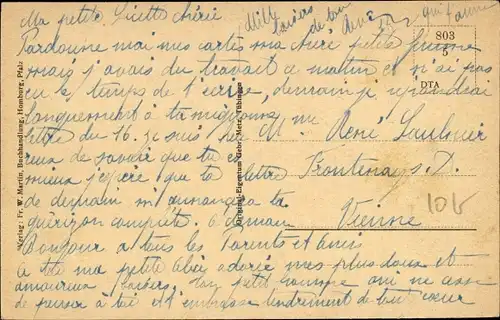 Ma petite Lisette chérie
Mille baisers de ton René qui t'aime
Pardonne moi mes cartes ma chère petite femme
mais j'avais du travail ce matin et n'ai pas
eu le temps de t'écrire, demain je répondrai
longuement à ta mignonne
lettre du 16. Je suis heu
reux de savoir que tu es
mieux j'espère que ta lettre
de demain m'annoncera ta
guérison complète. à demain
Bonjour à tous les Parents et Amis
à toi ma petite adorée mes plus doux et
amoureux baisers. Ton petit homme qui ne cesse
de penser à toi et t'embrasse tendrement de tout cœur
Mme René Saulnier
Frontenay s. D.
Vienne
803
5
DTA
105
Verlag: Fr. W. Martin, Buchhandlung, Homburg, Pfalz
Eigentum Gebr. Metz, Tübingen